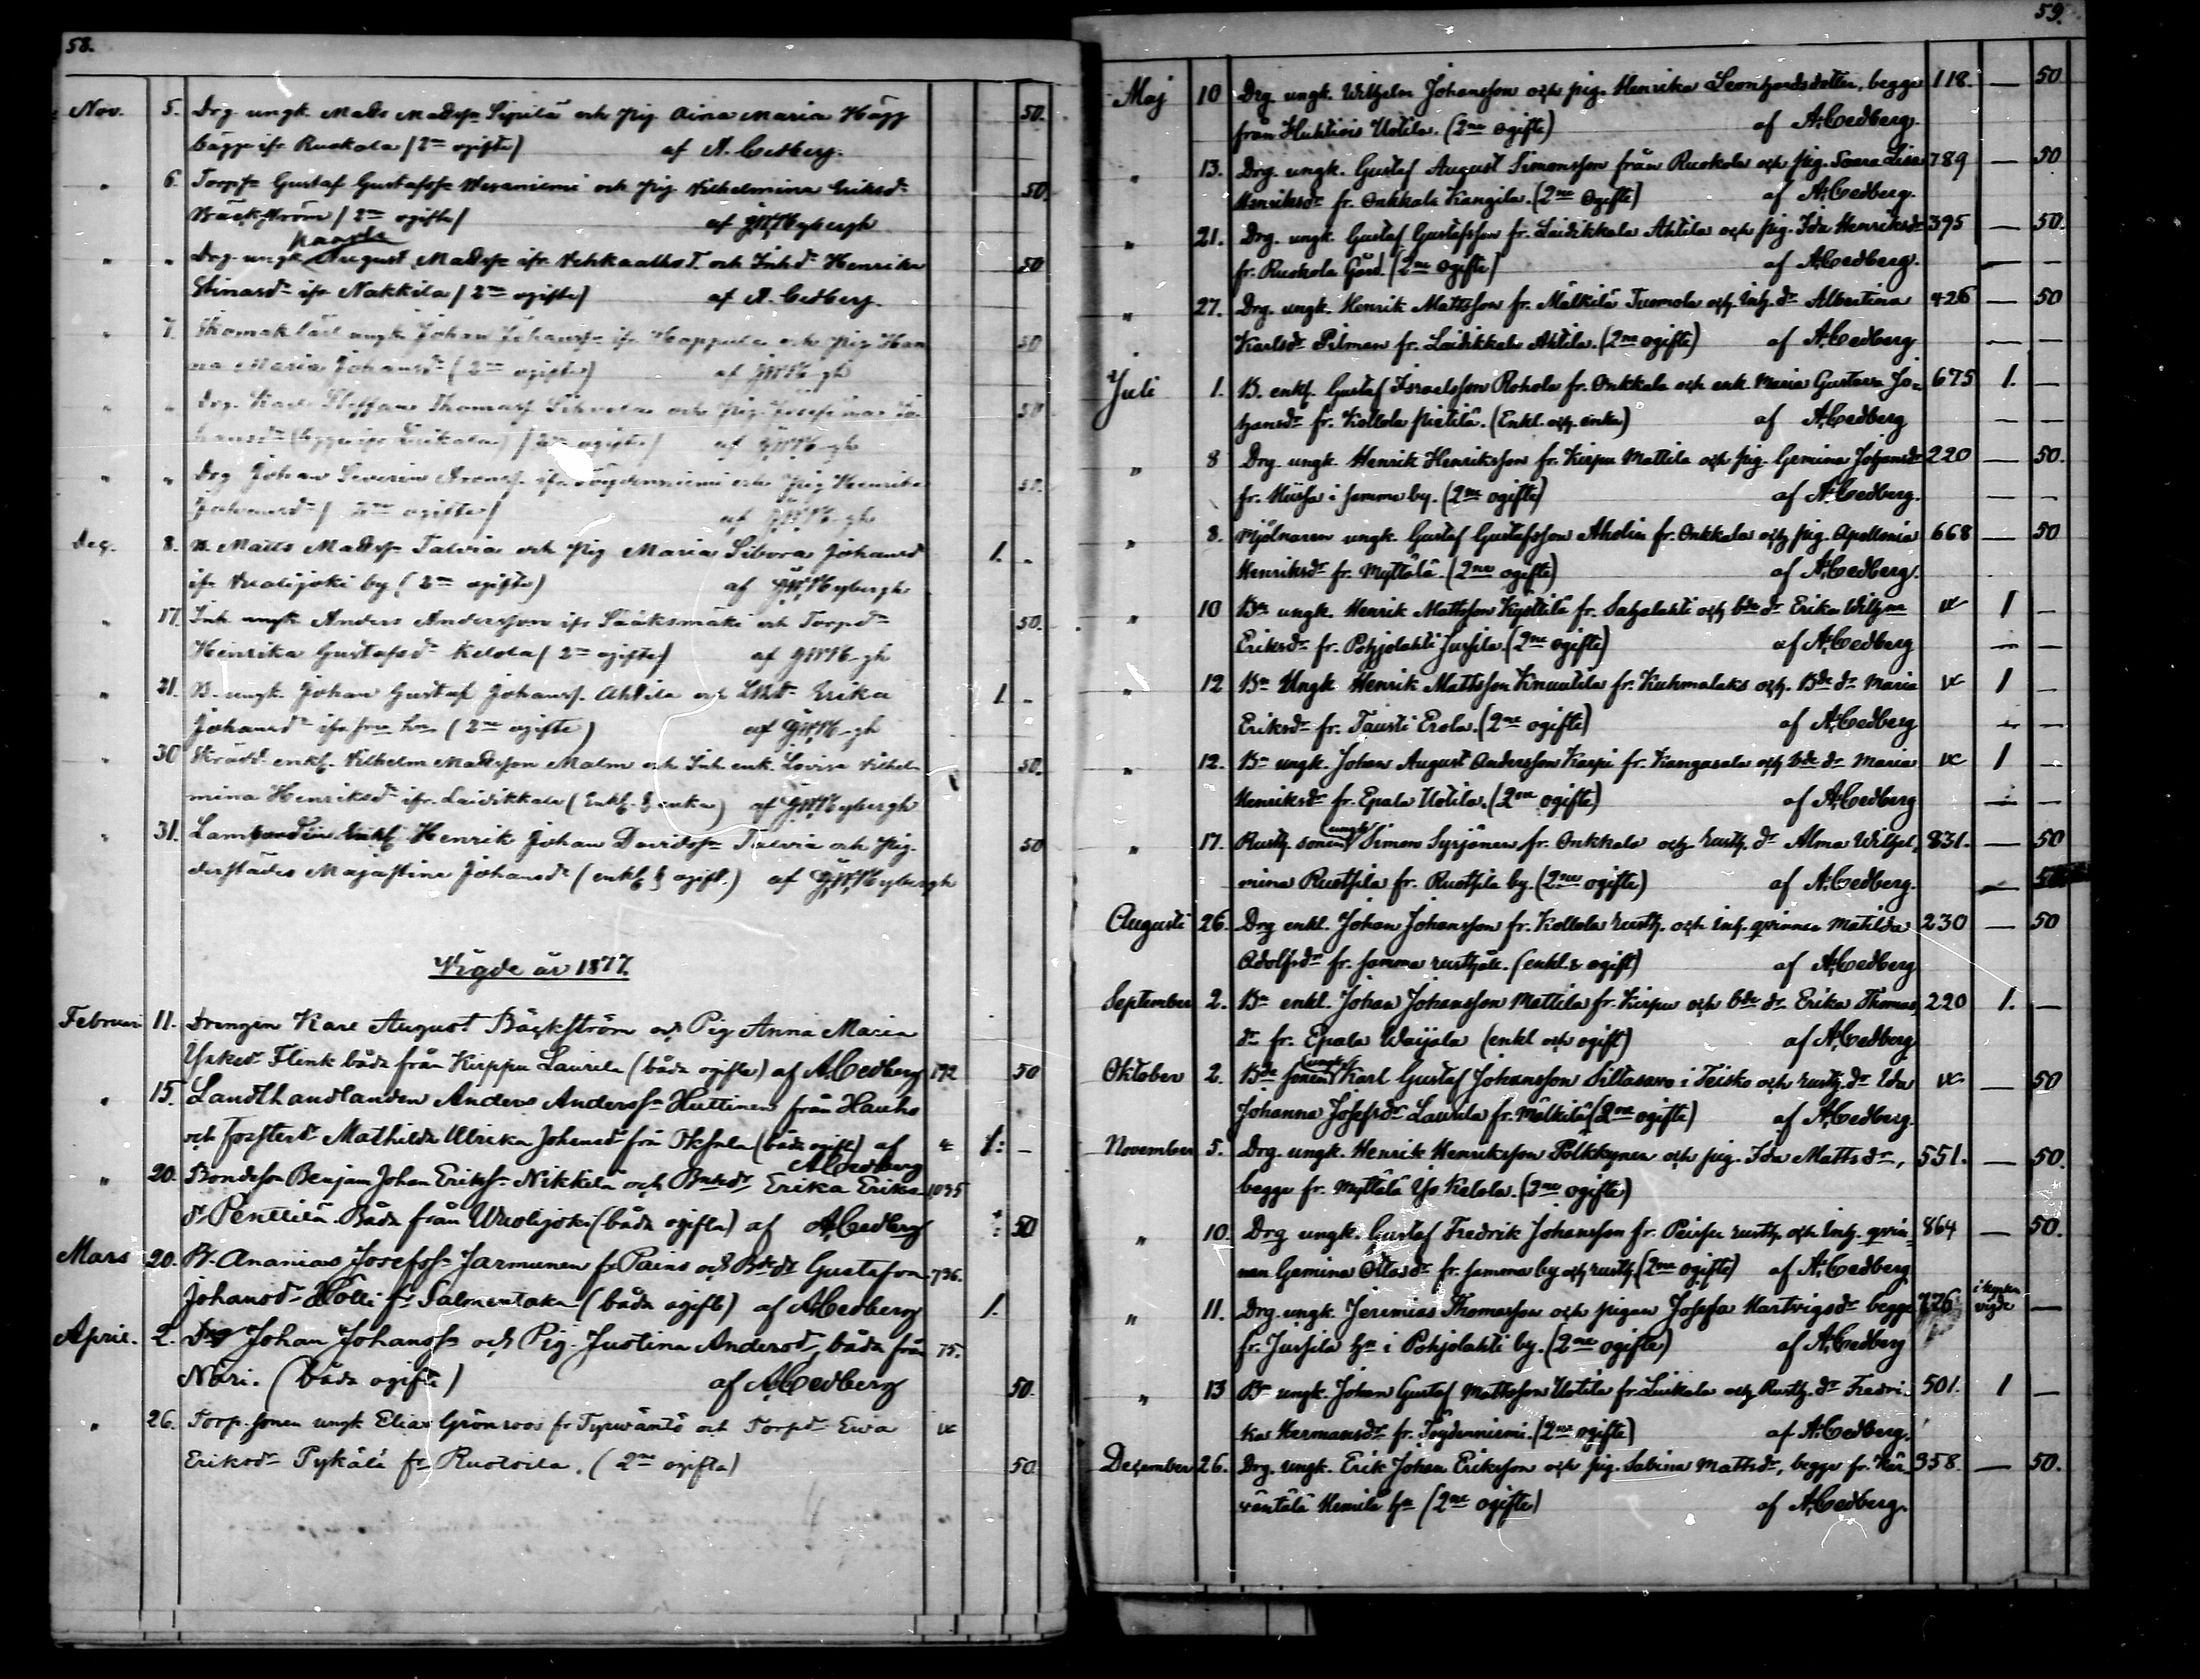 58.
Nov. 5. Drg ungk. Matts Mattss Sipilä och Pig Aina Maria Hägg 50.
bägge ifr Ruokola (2ne ogifte) af A. Cedberg.
" 6. Torps Gustaf Gustafss Wesaniemi och Pig Wilhelmina Eriksdr 50.
Bäckström (2ne ogifte) af Nybergh
" " Drg ungk August Mattss ifr T. och Inhdr Henrika 50
Stinasdr ifr Nakkila (2ne ogifte) af A. Cedberg.
" 7. ungk Johan Johanss ifr Hoppula och Pig Han 50
na Maria Johansdr (2ne ogifte) af gh
" " Drg. Karl Steffan Thomass och Pig Josefina Jo 50
hansdr (2ne ogifte) af gh
" " Drg Johan Severin ifr Töydenniemi och Pig Henrika 50.
Johansdr (2ne ogifte) af gh
Dec. 8. B. Matts Mattss Talvia och Pig Maria Johansd 1. -
ifr Uralijoki by (2ne ogifte) af Nybergh
" 17. Inh ungk Anders Andersson ifr Sääksmäki och Torpdr 50.
Henrika Gustafsdr Kelola (2ne ogifte) af gh
" 31. B. ungk. Johan Gustaf Johanss. Ahtila och Erika 1. -
Johansdr ifr (2ne ogifte) af gh
" 30 Skrädd. enkl. Wilhelm Mattsson Malm och Inh. enk. Lovisa Wilhel- 50.
mina Henriksdr ifr. Laidikkala (Enkl. & enka) af Nybergh
" 31. Enkl Henrik Johan Davidss Talvia och Pig. 50
derstädes Majastina Johansdr (enkl & ogift.) af Nybergh
Wigde år 1877.
Februari 11. Drengen Karl August Bäckström och Pig Anna Maria
Flink båda från Kirppu Laurila (båda ogifte) af A. Cedberg 192 50
" 15. Landthandlanden Anders Anderss Huttinen från Hauho
och Mathilda Ulrika Johansdr från (båda ogift) af 4 1: -
A. Cedberg
" 20. Bondeson Benjam Johan Erikss Nikkilä och Erika Eriks 1035
dr Penttilä Båda från Uralijoki (båda ogifta) af A. Cedberg 50
Mars 20. B. Ananias Josefss Jarmunen fr Pains och Bdedr Gustafva 796.
Johansdr Hölli fr Salmentaka (båda ogifte) af A. Cedberg 1.
April. 2. Drg Johan Johanss och Pig. Justina Andersdr, båda från 75.
Näri. (båda ogifte) af A. Cedberg 50.
" 26. Torp. sonen ungk Elias Grönroos fr Tyrwäntö och Torpdr Ewa
Eriksdr Pykälä fr Ruotsila. (2ne ogifta) 50.
59.
Maj 10 Drg. ungk. Wilhelm Johansson och pig. Henrika Leonhardsdotter, begge 118. — 50
från Huhtiois Uotila. (2ne ogifte) af A. Cedberg.
" 13. Drg. ungk. Gustaf August Simonsson från Ruokola och pig. Saara Lisa 789 — 50
Henriksdr fr. Onkkala Kangila. (2ne ogifte) af A. Cedberg.
" 21. Drg. ungk. Gustaf Gustafsson fr. Laidikkala Ahtila och pig. Ida Henriksdr 395 — 50.
fr. Ruokola Gård. (2ne ogifte) af A. Cedberg. — —
" 27. Drg. ungk. Henrik Mattsson fr. Mälkilä Tuomola och Inh. dr Albertina 426 — 50
Karlsdr Pilman fr. Laidikkala Ahtila. (2ne ogifte) af A. Cedberg — —
Juli 1. B. enkl. Gustaf Israelsson Rohola fr. Onkkala och enk. Maria Gustava Jo- 675 1. —
hansdr fr. Kollola Pietilä. (Enkl. och enka) af A. Cedberg — —
" 8 Drg. ungk. Henrik Henriksson fr. Kirpu Mattila och pig. Gemina Johansdr 220 — 50.
fr. i samma by. (2ne ogifte) af A. Cedberg. — —
" 8. Mjölnaren ungk. Gustaf Gustafsson Aholin fr. Onkkala och pig. Apollonia 668 — 50
Henriksdr fr. Myttälä. (2ne ogifte) af A. Cedberg.
" 10 Bn ungk. Henrik Mattsson Kyöttilä fr. Sahalahti och bde dr Erika Wilhma 1 —
Eriksdr fr. Pohjolahti Jussila. (2ne ogifte) af A. Cedberg — —
" 12 Bn Ungk. Henrik Mattsson Knuutila fr. Kuhmalaks och. Bde dr Maria 1 —
Eriksdr fr. Tausti Erola. (2ne ogifte) af A. Cedberg — —
" 12. Bn ungk. Johan August Andersson Karpi fr. Kangasala och bde dr Maria 1 —
Henriksdr fr. Epala Uotila. (2ne ogifte) af A. Cedberg — —
" 17. Rusth. sonen (ungk) Simon Syrjänen fr. Onkkala och rusth. dr Alma Wilhel- 831. — 50
mina Ruotsila fr. Ruotsila by. (2ne ogifte) af A. Cedberg. —
Augusti 26. Drg enkl. Johan Johansson fr. Kollola rusth. och inh. qvinnan Matilda 230 — 50
Adolfsdr fr. samma rusthåll. (enkl. & ogift) af A. Cedberg
September 2. Bn enkl. Johan Johansson Mattila fr. Kirpu och bde dr Erika Thomas 220 1. —
dr fr. Epala Waijala (enkl och ogift) af A. Cedberg
Oktober 2. Bde sonen (ungk) Karl Gustaf Johansson Siltasavo i Teisko och rusth. dr Ida — 50
Johanna Josefsdr Laurila fr. Mälkilä (2ne ogifte) af A. Cedberg.
November 5. Drg. ungk. Henrik Henriksson Polkkynen och pig. Ida Mattsdr, 551. — 50.
begge fr. Myttälä Yso Kelola. (2ne ogifte)
" 10. Drg ungk. Gustaf Fredrik Johansson fr. rusth. och Inh. qvin- 864 — 50.
nan Gemina Ottosdr fr. samma by och rusth. (2ne ogifte) af A. Cedberg
" 11. Drg. ungk. Jeremias Thomasson och pigan Josefa Hartvigsdr begge 226 i kyrkan vigde —
fr. Jussila hn i Pohjolahti by. (2ne ogifte) af A. Cedberg
" 13 Bn ungk. Johan Gustaf Mattsson Uotila fr. Luikala och Rusth. dr Fredri- 501. 1 —
ka Hermansdr fr. Töydenniemi. (2ne ogifte) af A. Cedberg.
December 26. Drg. ungk. Erik Johan Eriksson och pig. Sabina Mattsdr, begge fr. Här- 958. — 50.
väntälä Hemilä hn (2ne ogifte) af A. Cedberg.